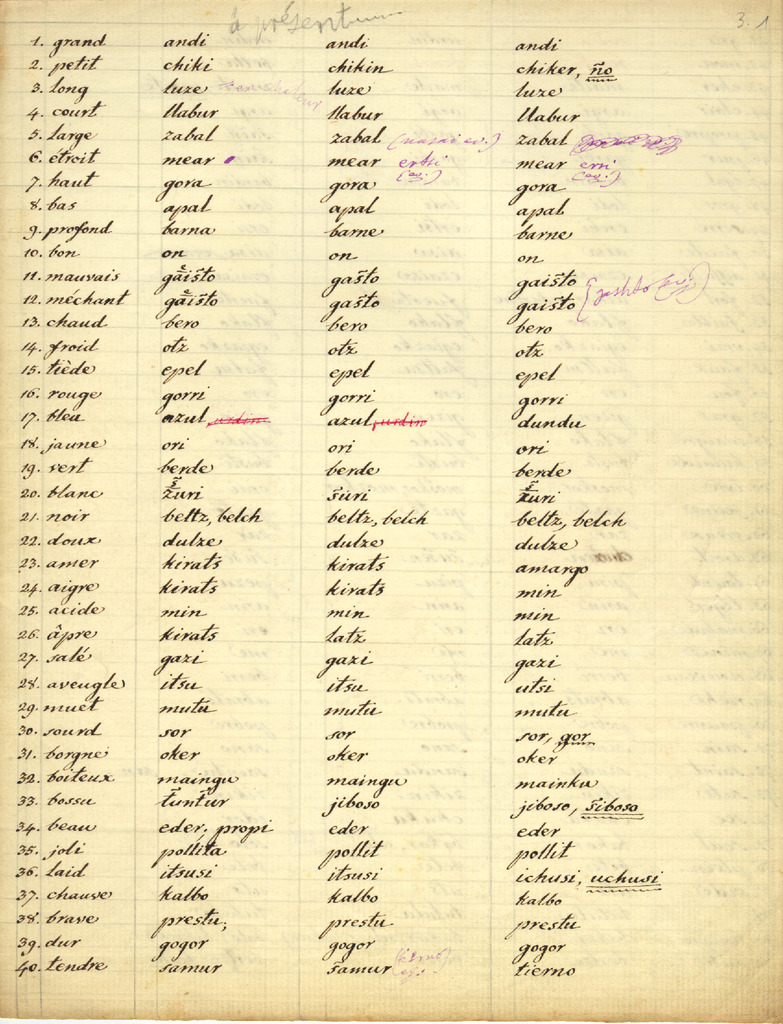 à présent
3. 1
1. grand andi andi andi
2. petit chiki chikin chiker, ño
3. long luze luze luze
4. court llabur llabur llabur
5. large zabal zabal zabal
6. étroit mear mear ertsi (ay.) mear ersi (ay.)
7. haut gora gora gora
8. bas apal apal apal
9. profond barna barne barne
10. bon on on on
11. mauvais gaišto gašto gaišto
12. méchant gaišto gašto gaišto (gashto
13. chaud bero bero bero
14. froid otz otz otz
15. tiède epel epel epel
16. rouge gorri gorri gorri
17. bleu azul urdin azul urdin dundu
18. jaune ori ori ori
19. vert berde berde berde
20. blanc žuri šuri žuri
21. noir beltz, belch beltz, belch beltz, belch
22. doux dulze dulze dulze
23. amer kirats kirats amargo
24. aigre kirats kirats min
25. acide min min min
26. âpre kirats latz latz
27. salé gazi gazi gazi
28. aveugle itsu itsu utsi
29. muet mutu mutu mutu
30. sourd sor sor sor, gor
31. borgne oker oker oker
32. boiteux maingu maingu mainku
33. bossu tuntur jiboso jiboso, šiboso
34. beau eder, propi eder eder
35. joli pollita pollit pollit
36. laid itsusi itsusi ichusi, uchusi
37. chauve kalbo kalbo kalbo
38. brave prestu, prestu prestu
39. dur gogor gogor gogor
40. tendre samur šamur tierno